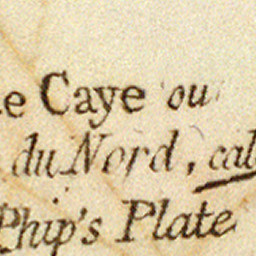 le Caye ou
du Nord, cal
Phip's Plate